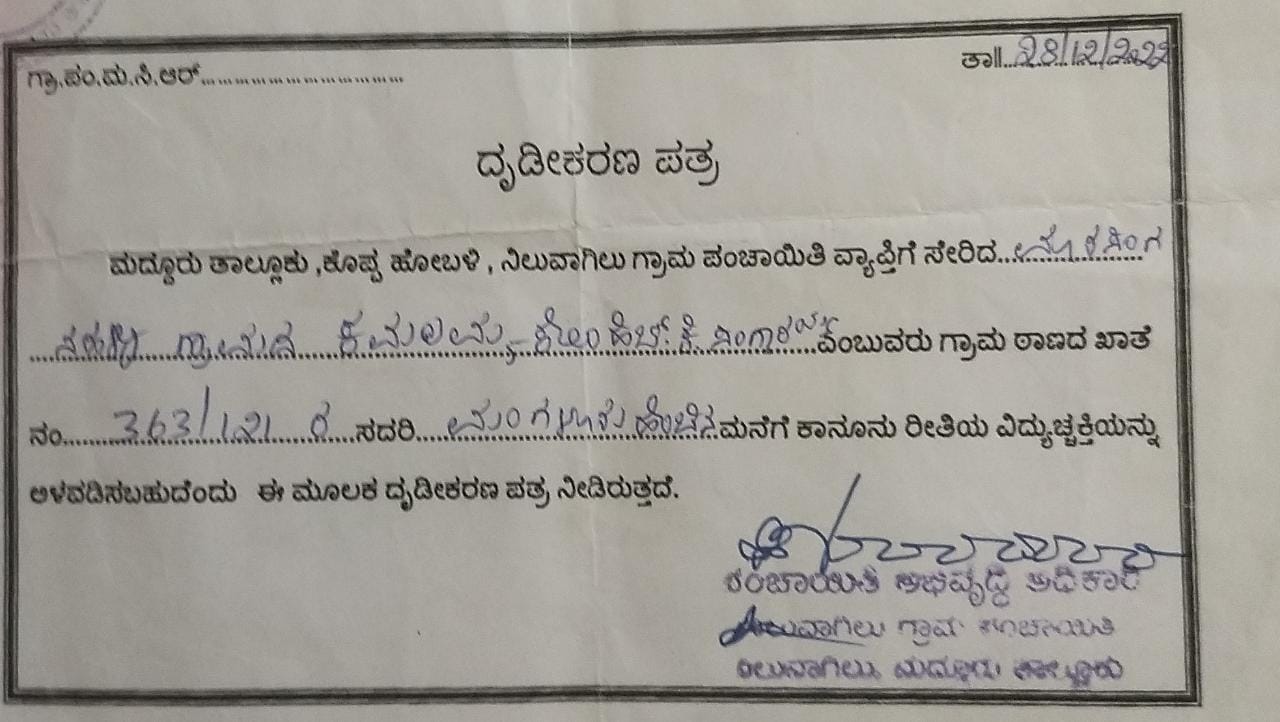 ಗ್ರಾ.ಪಂ.ಮ.ಸಿ.ಆರ್................................ ತಾ||..28/12/2022
ದೃಡೀಕರಣ ಪತ್ರ
ಮದ್ದೂರು ತಾಲ್ಲೂಕು ,ಕೊಪ್ಪ ಹೋಬಳಿ , ನಿಲುವಾಗಿಲು ಗ್ರಾಮ ಪಂಚಾಯಿತಿ ವ್ಯಾಪ್ತಿಗೆ ಸೇರಿದ
ಗ್ರಾಮದ ಕಮಲಮ್ಮ ಕೋಂ ಹೆಚ್.ಕೆ ಎಂಬುವರು ಗ್ರಾಮ ಠಾಣದ ಖಾತೆ
ನಂ 363/121 ರ ಸದರಿ ಮಂಗಳೂರು ಹೆಂಚಿನ ಮನೆಗೆ ಕಾನೂನು ರೀತಿಯ ವಿದ್ಯುಚ್ಚಕ್ತಿಯನ್ನು
ಅಳವಡಿಸಬಹುದೆಂದು ಈ ಮೂಲಕ ದೃಡೀಕರಣ ಪತ್ರ ನೀಡಿರುತ್ತದೆ.
ಪಂಚಾಯಿತಿ ಅಭಿವೃದ್ಧಿ ಅಧಿಕಾರಿ
ನಿಲುವಾಗಿಲು ಗ್ರಾಮ ಪಂಚಾಯಿತಿ
ನಿಲುವಾಗಿಲು, ಮದ್ದೂರು ತಾಲ್ಲೂಕು